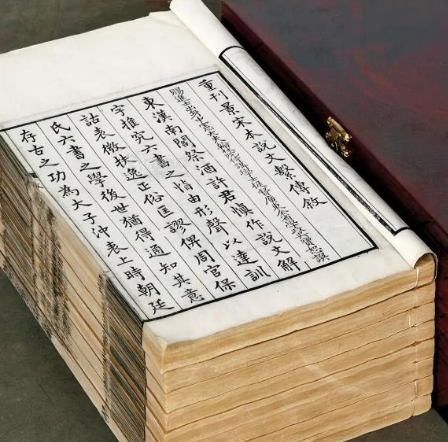 重刊景宋本說文繫傳敘
賜進士出身
東漢南閣祭酒許君慎作說文解
字推究六書之恉由形聲以達訓
詁表微扶逸正俗匡謬俾周官保
氏六書之學後世猶得通知其意
存古之功為大子沖表上時朝廷